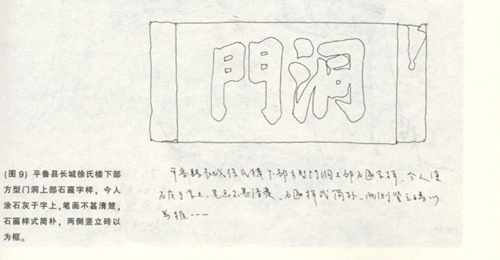 門洞
(图9) 平鲁县长城徐氏楼下部
方型门洞上部石匾字样，今人
涂石灰于字上，笔画不甚清楚，
石匾样式简朴，两侧竖立砖以
为框。
平鲁县长城徐氏楼下部方型门洞上部石匾字样，今人涂
石灰于字上，笔画不甚清楚，石匾样式简朴，两侧竖立砖以
为框……